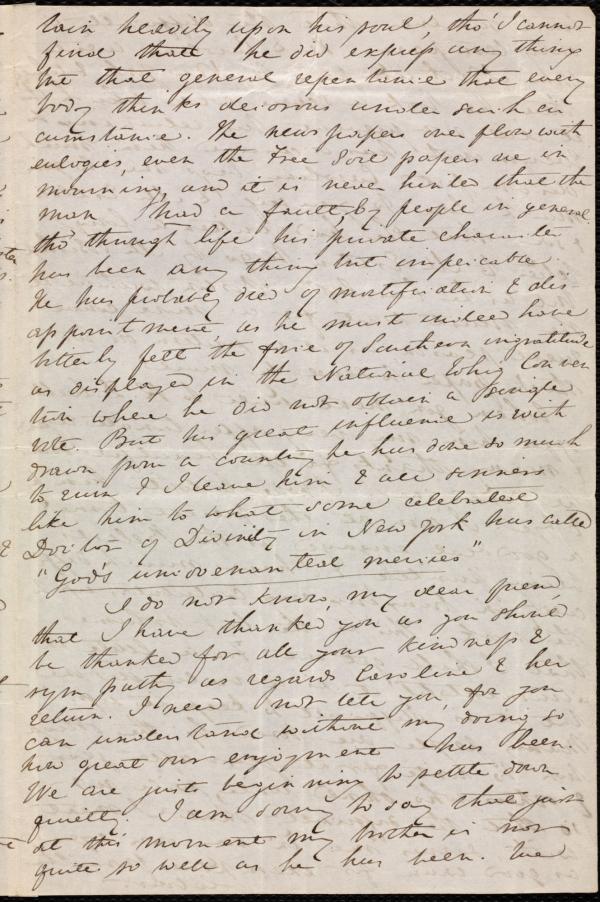 lain heavily upon his soul, tho' I cannot
find that he did express any thing
but that general repentance that every
body thinks decorous under such cir
cumstance. The newspapers over flow with
eulogies, even the Free Soil papers are in
mourning, and it is never hinted that the
man had a fault, by people in general.
tho' through life his private character
has been any thing but impeccable.
He has probably died of mortification & dis-
appointment, as he must indeed have
bitterly felt the force of Southern ingratitude
as displayed in the National Whig Conven
tion where he did not obtain a single
vote. But his great influence is with
drawn from a country he has done so much
to ruin & I leave him & all sinners
like him to what some celebrated
Doctor of Divinity in New York has called
"God's uncovenanted mercies"
I do not know, my dear friend,
that I have thanked you as you should
be thanked for all your kindness &
sympathy as regards Caroline & her
return. I need not tell you, for you
can understand without my doing so
how great our enjoyment has been.
We are just beginning to settle down
quietly. I am sorry to say that just
at this moment my brother is not
quite so well as he has been. The